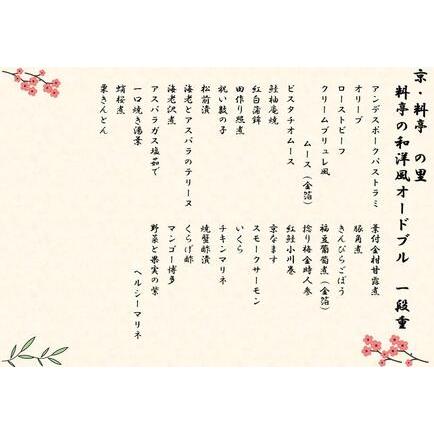 京・料亭 の里
料亭の和洋風オードブル 一段重
アンデスポークパストラミ
オリーブ
ローストビーフ
クリームブリュレ風
ムース(金箔)
ピスタチオムース
鮭柚庵焼
紅白蒲鉾
田作り照煮
祝い鼓の子
松前漬
海老とアスパラのテリーヌ
海老沢煮
アスパラガス塩茹で
一口焼き湯葉
蛸桜煮
栗きんとん
葉付金柑甘露煮
豚角煮
きんぴらごぼう
福豆葡萄煮(金箔)
捻り梅金時人参
紅鮭小川巻
京なます
スモークサーモン
いくら
チキンマリネ
焼蟹酢漬
くらげ酢
マンゴー博多
野菜と果実の紫
ヘルシーマリネ